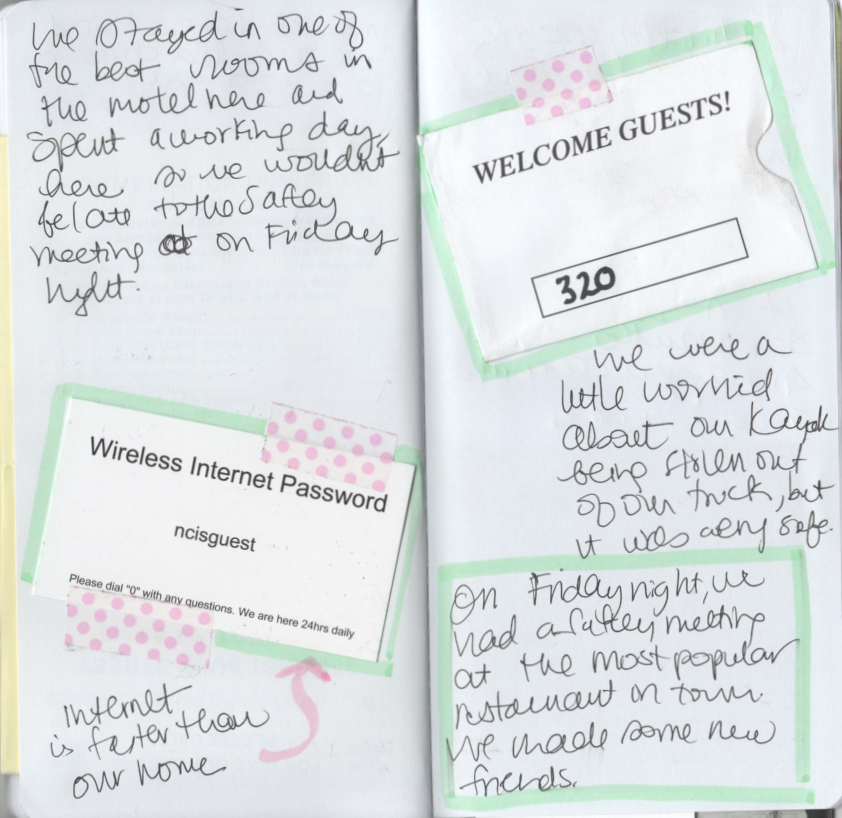 We stayed in one of
the best rooms in
the motel here and
spent a working day,
here so we wouldn't
be late to the Saftey
meeting on Friday
night.
Wireless Internet Password
ncisguest
Please dial "0" with any questions. We are here 24hrs daily
Internet
is faster than
our home
WELCOME GUESTS!
320
We were a
little worried
about our Kayak
being stolen out
of our truck, but
it was very safe.
On Friday night, we
had a saftey meeting
at the most popular
restaurant in town.
We made some new
friends.